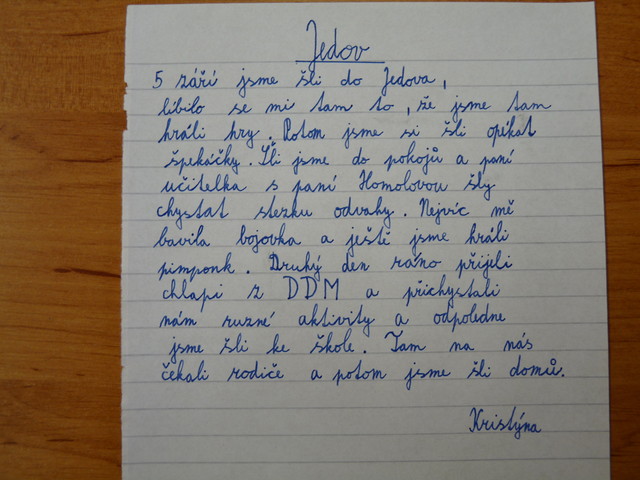 Jedov
5 září jsme šli do Jedova,
líbilo se mi tam to, že jsme tam
hráli hry. Potom jsme si šli opékat
špekáčky. Šli jsme do pokojů a paní
učitelka s paní Homolovou šly
chystat stezku odvahy. Nejvíc mě
bavila bojovka a ještě jsme hráli
pimponk. Druhý den ráno přijili
chlapi z DDM a přichystali
nám ruzné aktivity a odpoledne
jsme šli ke škole. Tam na nás
čekali rodiče a potom jsme šli domů.
Kristýna